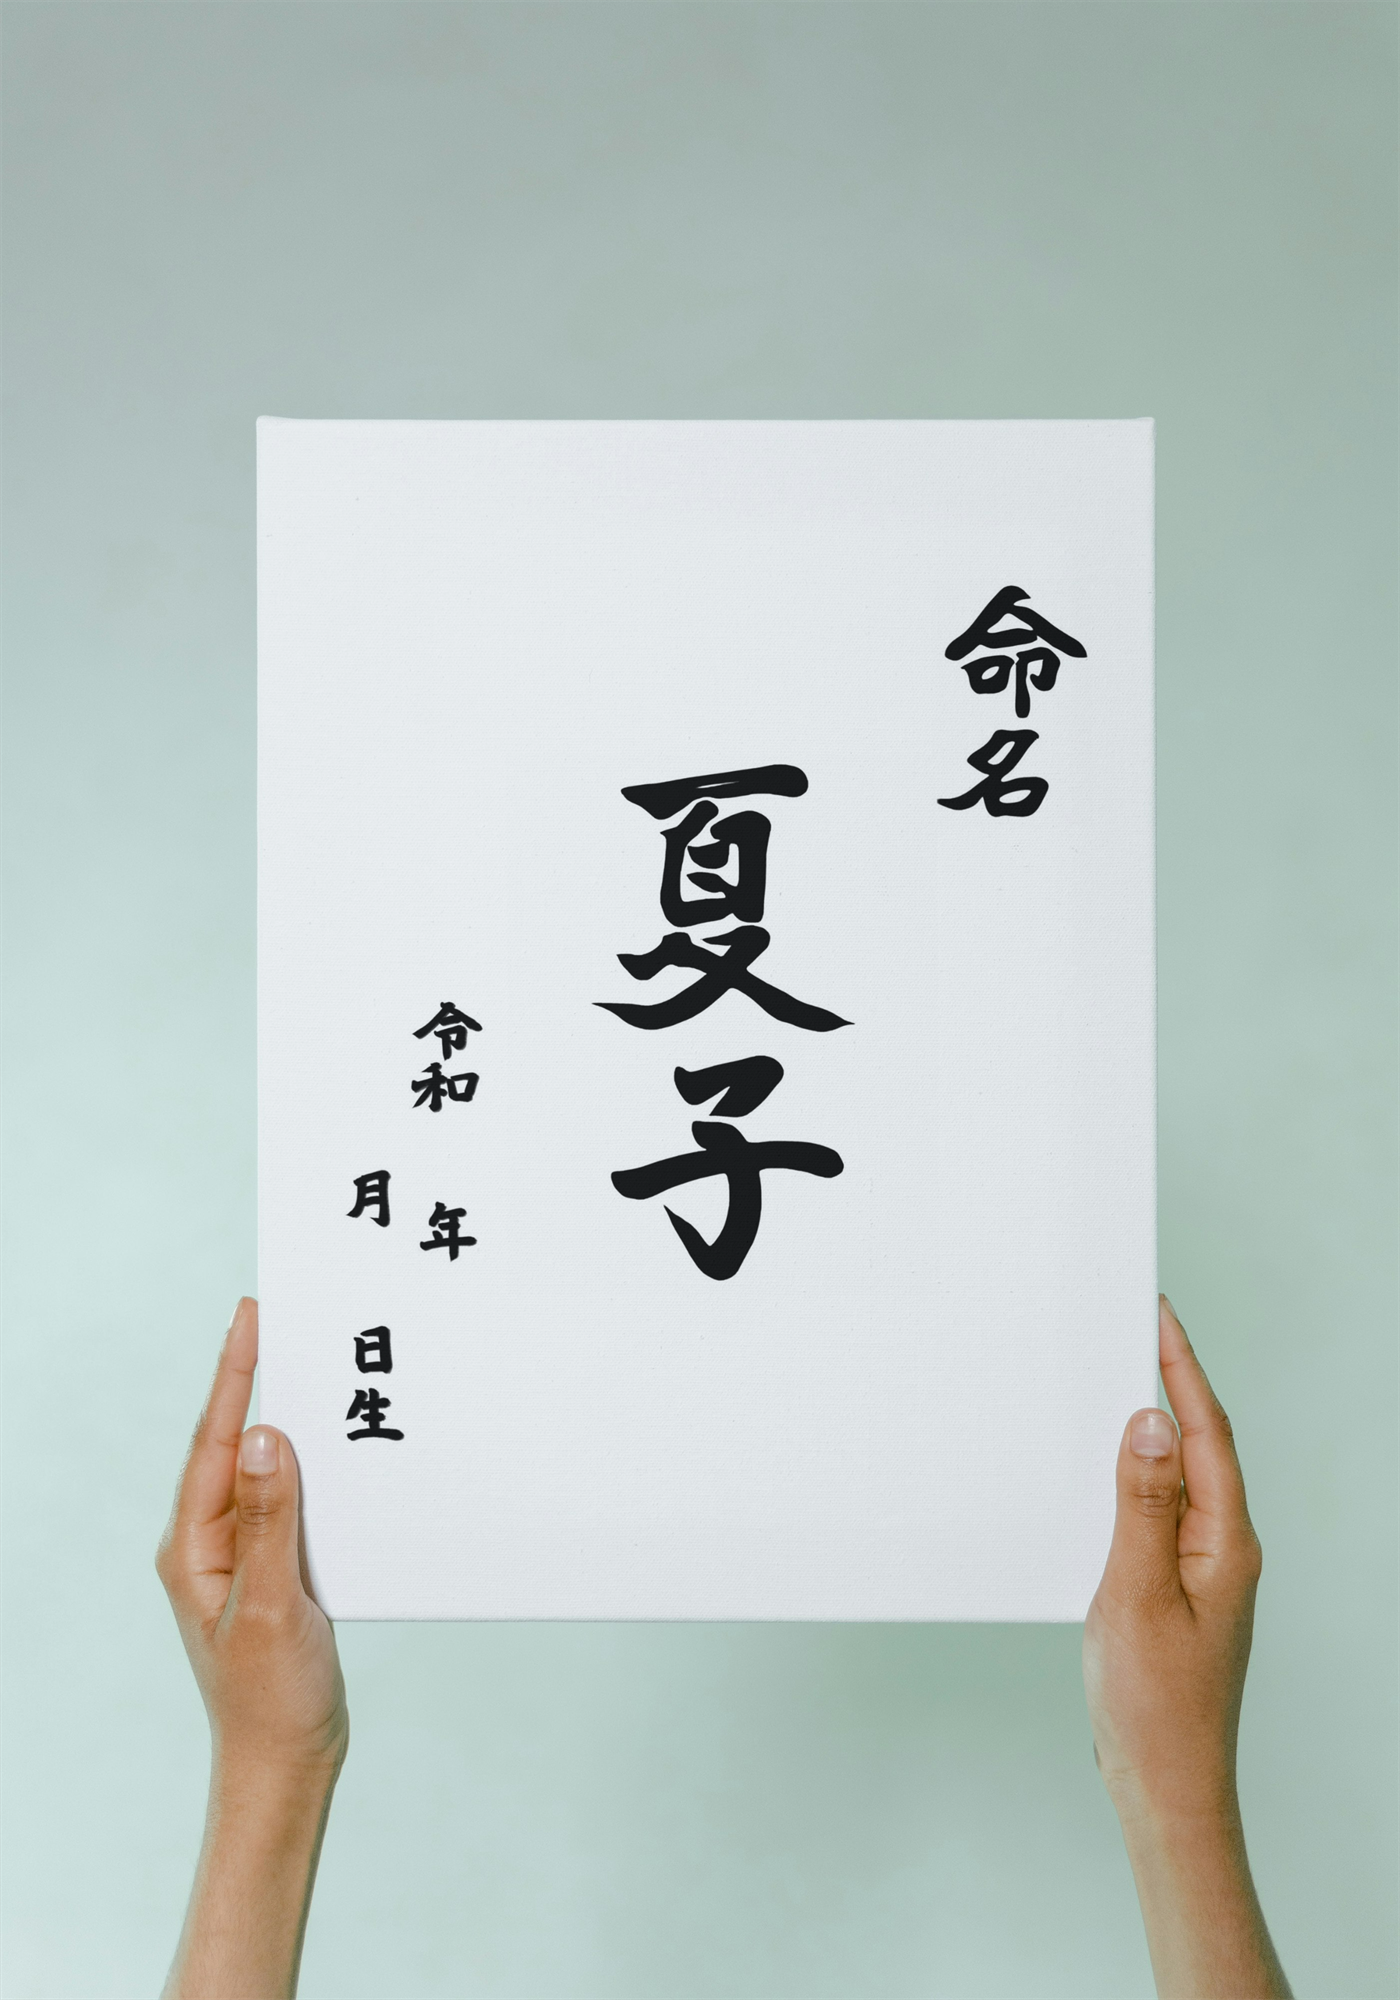 命名
夏子
令和 年
月 日生